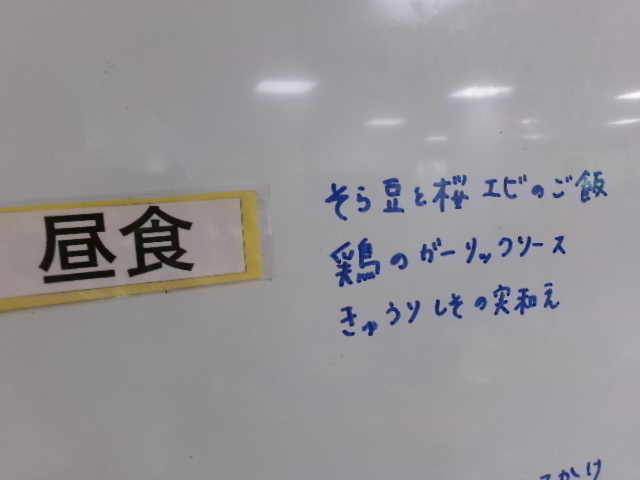 昼食
そら豆と桜エビのご飯
鶏のガーリックソース
きゅうりしその実和え